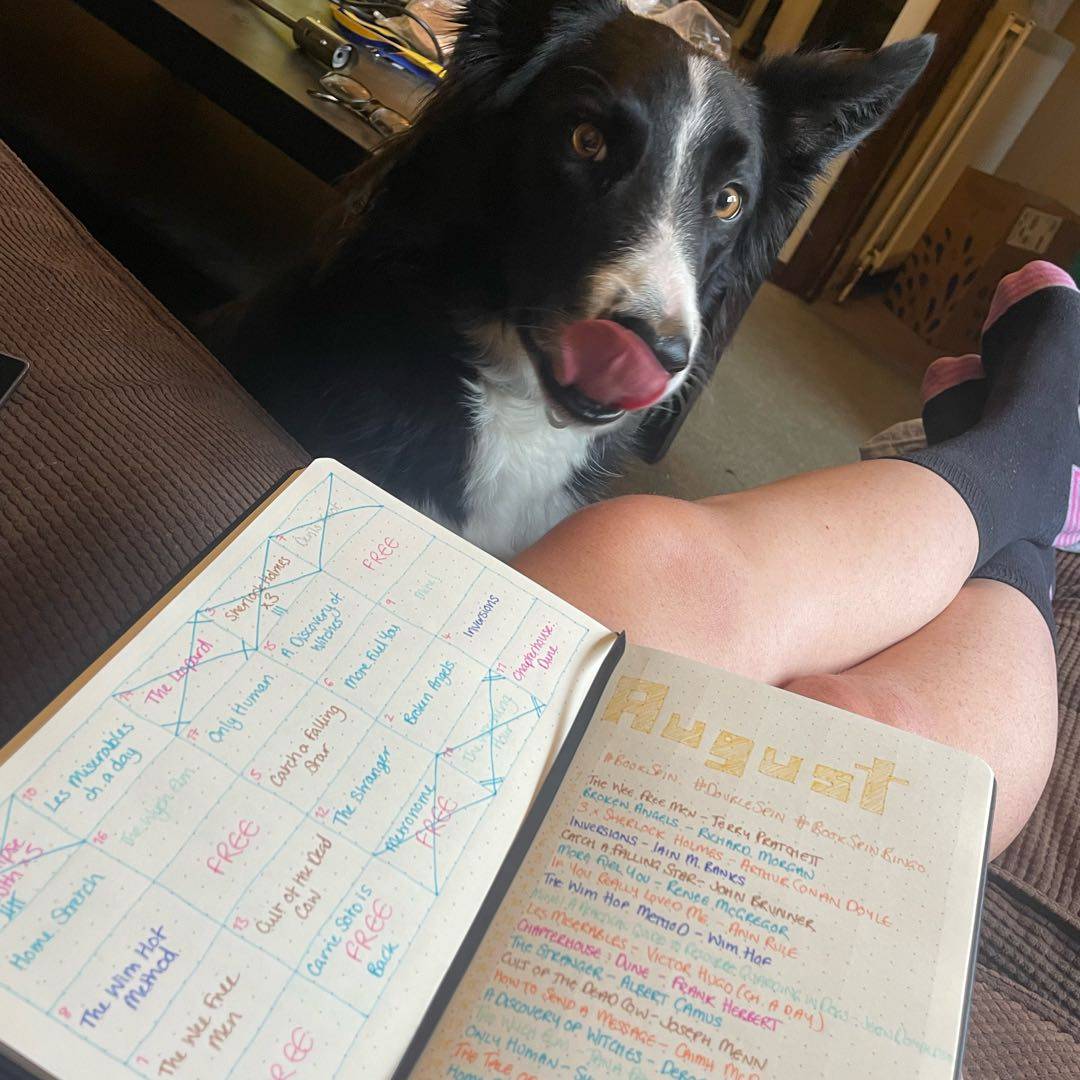 10
Les Miserables
ch. a day
14
The Leopard
3
Sherlock Holmes
x3
III
7
Home Stretch
16
The Wych Elm
17
Only Human
15
A Discovery of
Witches
FREE
8
The Wim Hof
Method
FREE
5
Catch a Falling
Star
6
More Fuel You
9
Mine!
1
The Wee Free
Men
13
Cult of the Dead
Cow
12
The Stranger
2
Broken Angels
4
Inversions
FREE
Carrie Soto is
FREE
Back
Metronome
FREE
The
Hour
11
Chapterhouse:
Dune
August
#BOOKSPIN #DOUBLESPIN #BOOKSPINBINGO
THE WEE FREE MEN - TERRY PRATCHETT
BROKEN ANGELS - RICHARD MORGAN
3 x SHERLOCK HOLMES - ARTHUR CONAN DOYLE
INVERSIONS - IAIN M. BANKS
CATCH A FALLING STAR - JOHN BRUNNER
MORE FUEL YOU - RENEE MCGREGOR
IF YOU REALLY LOVED ME - ANN RULE
THE WIM HOF METHOD - WIM HOF
MINE! A PRACTICAL GUIDE TO RESOURCE GUARDING IN DOGS - JEAN DONALDSON
LES MISERABLES - VICTOR HUGO (CH. A DAY)
CHAPTERHOUSE: DUNE - FRANK HERBERT
THE STRANGER - ALBERT CAMUS
CULT OF THE DEAD COW - JOSEPH MENN
HOW TO SEND A MESSAGE -
A DISCOVERY OF WITCHES -
THE WYCH ELM - TANA
ONLY HUMAN -
THE TALE OF